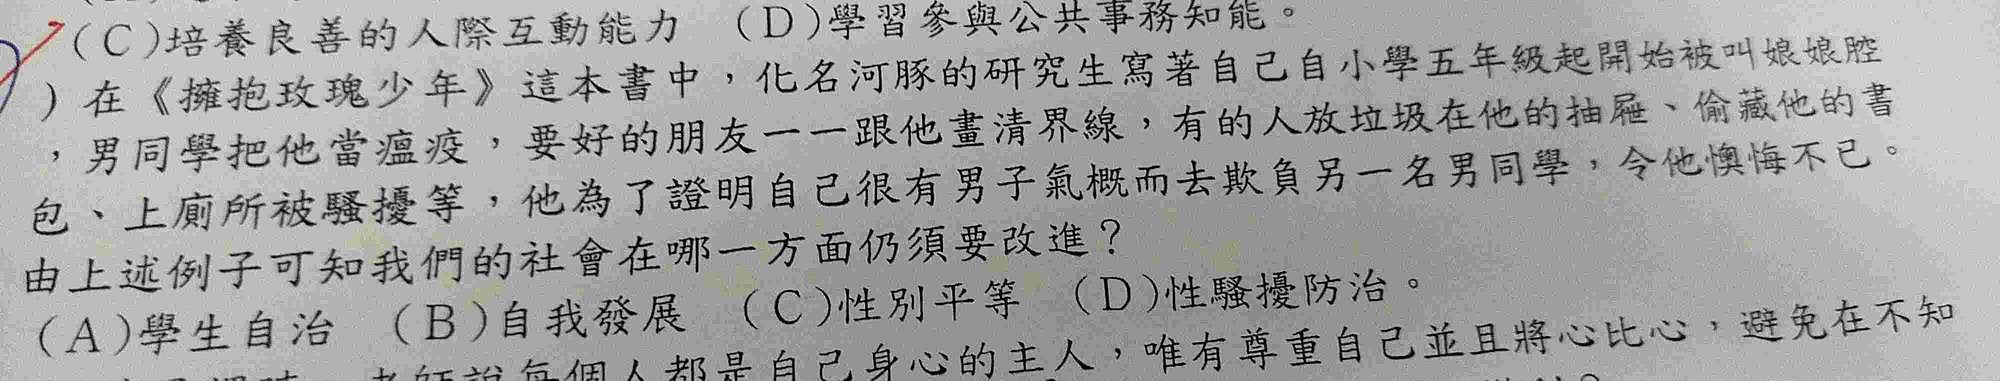 (C)培養良善的人際互動能力 (D)學習參與公共事務知能。
)在《擁抱玫瑰少年》這本書中，化名河豚的研究生寫著自己自小學五年級起開始被叫娘娘腔
，男同學把他當瘟疫，要好的朋友一一跟他畫清界線，有的人放垃圾在他的抽屜、偷藏他的書
包、上廁所被騷擾等，他為了證明自己很有男子氣概而去欺負另一名男同學，令他懊悔不已。
由上述例子可知我們的社會在哪一方面仍須要改進？
(A)學生自治 (B)自我發展 (C)性別平等 (D)性騷擾防治。
老師說每個人都是自己身心的主人，唯有尊重自己並且將心比心，避免在不知